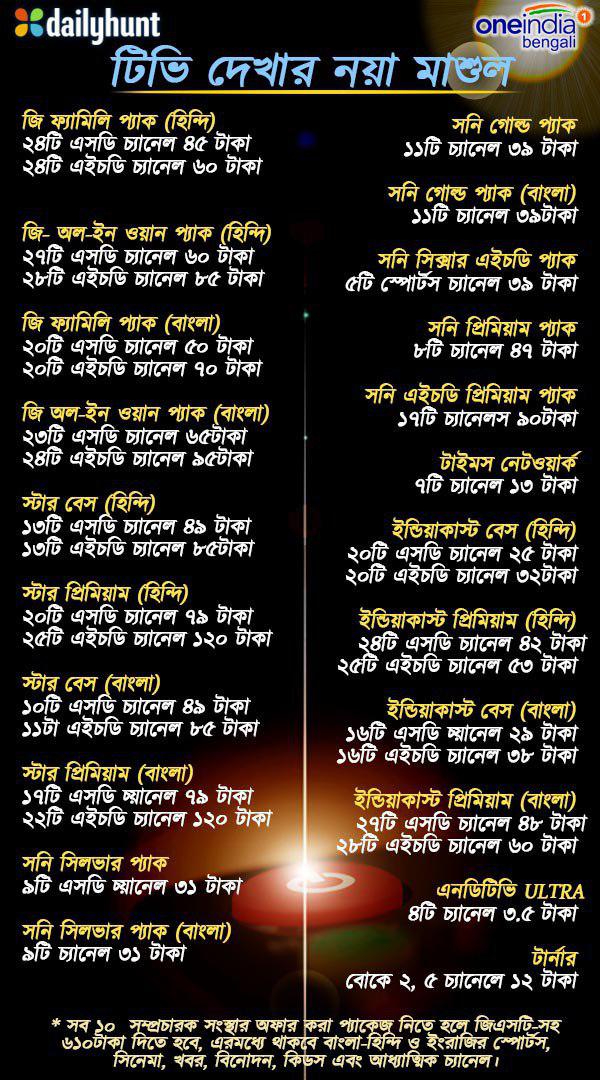 dailyhunt
oneindia
bengali
1
টিভি দেখার নয়া মাশুল
জি ফ্যামিলি প্যাক (হিন্দি)
২৪টি এসডি চ্যানেল ৪৫ টাকা
২৪টি এইচডি চ্যানেল ৬০ টাকা
জি- অল-ইন ওয়ান প্যাক (হিন্দি)
২৭টি এসডি চ্যানেল ৬০ টাকা
২৮টি এইচডি চ্যানেল ৮৫ টাকা
জি ফ্যামিলি প্যাক (বাংলা)
২০টি এসডি চ্যানেল ৫০ টাকা
২০টি এইচডি চ্যানেল ৭০ টাকা
জি অল-ইন ওয়ান প্যাক (বাংলা)
২৩টি এসডি চ্যানেল ৬৫টাকা
২৪টি এইচডি চ্যানেল ৯৫টাকা
স্টার বেস (হিন্দি)
১৩টি এসডি চ্যানেল ৪৯ টাকা
১৩টি এইচডি চ্যানেল ৮৫টাকা
স্টার প্রিমিয়াম (হিন্দি)
২০টি এসডি চ্যানেল ৭৯ টাকা
২৫টি এইচডি চ্যানেল ১২০ টাকা
স্টার বেস (বাংলা)
১০টি এসডি চ্যানেল ৪৯ টাকা
১১টা এইচডি চ্যানেল ৮৫ টাকা
স্টার প্রিমিয়াম (বাংলা)
১৭টি এসডি চ্য্যানেল ৭৯ টাকা
২২টি এইচডি চ্যানেল ১২০ টাকা
সনি সিলভার প্যাক
৯টি এসডি চ্য্যানেল ৩১ টাকা
সনি সিলভার প্যাক (বাংলা)
৯টি চ্যানেল ৩১ টাকা
সনি গোল্ড প্যাক
১১টি চ্যানেল ৩৯ টাকা
সনি গোল্ড প্যাক (বাংলা)
১১টি চ্যানেল ৩৯টাকা
সনি সিক্সার এইচডি প্যাক
৫টি স্পোর্টস চ্যানেল ৩৯ টাকা
সনি প্রিমিয়াম প্যাক
৮টি চ্যানেল ৪৭ টাকা
সনি এইচডি প্রিমিয়াম প্যাক
১৭টি চ্যানেলস ৯০টাকা
টাইমস নেটওয়ার্ক
৭টি চ্যানেল ১৩ টাকা
ইন্ডিয়াকাস্ট বেস (হিন্দি)
২০টি এসডি চ্যানেল ২৫ টাকা
২০টি এইচডি চ্যানেল ৩২টাকা
ইন্ডিয়াকাস্ট প্রিমিয়াম (হিন্দি)
২৪টি এসডি চ্যানেল ৪২ টাকা
২৫টি এইচডি চ্যানেল ৫৩ টাকা
ইন্ডিয়াকাস্ট বেস (বাংলা)
১৬টি এসডি চ্য্যানেল ২৯ টাকা
১৬টি এইচডি চ্যানেল ৩৮ টাকা
ইন্ডিয়াকাস্ট প্রিমিয়াম (বাংলা)
২৭টি এসডি চ্যানেল ৪৮ টাকা
২৮টি এইচডি চ্যানেল ৬০ টাকা
এনডিটিভি ULTRA
৪টি চ্যানেল ৩.৫ টাকা
টার্নার
বোকে ২, ৫ চ্যানেলে ১২ টাকা
* সব ১০ সম্প্রচারক সংস্থার অফার করা প্যাকেজ নিতে হলে জিএসটি-সহ
৬১০টাকা দিতে হবে, এরমধ্যে থাকবে বাংলা-হিন্দি ও ইংরাজির স্পোর্টস,
সিনেমা, খবর, বিনোদন, কিডস এবং আধ্যাত্মিক চ্যানেল।